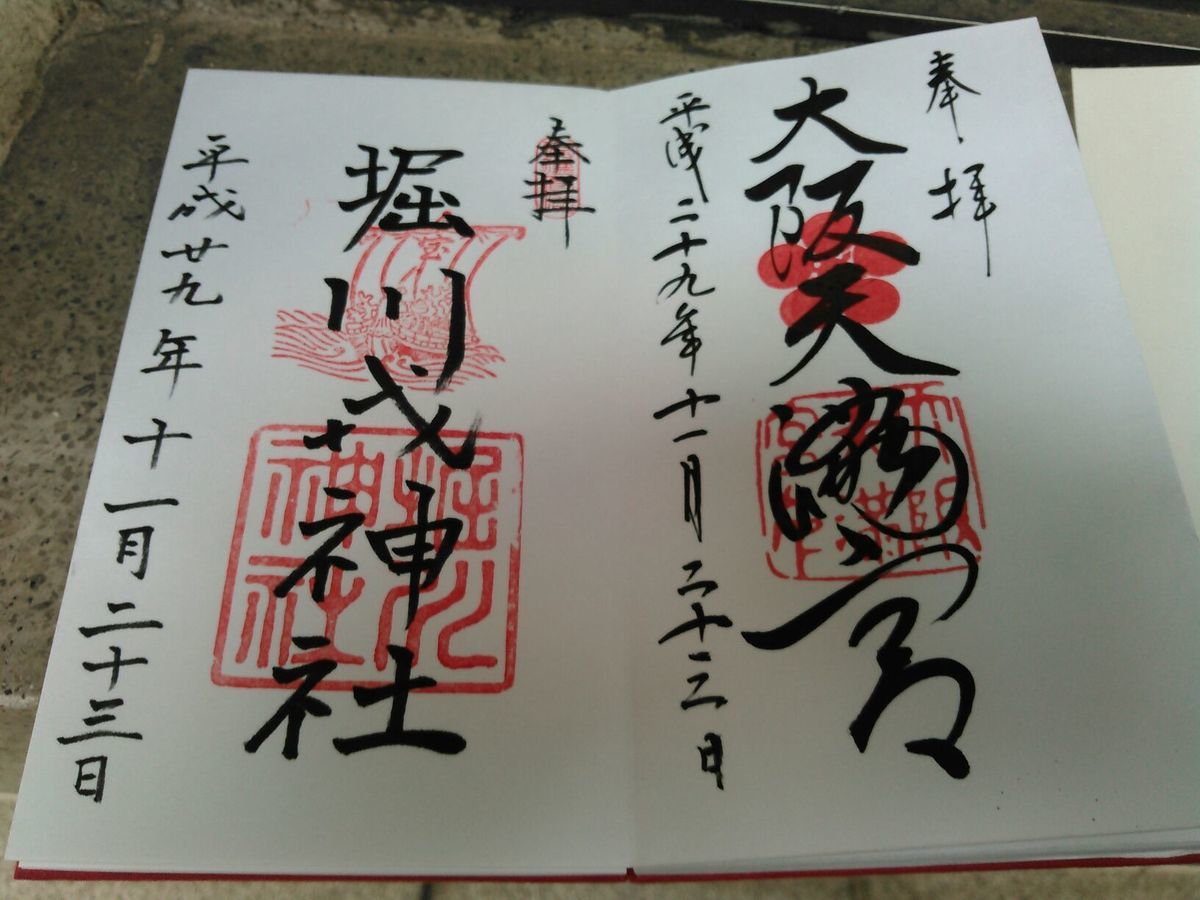 奉拝
大阪天満宮
平成二十九年十一月二十三日
奉拝
堀川戎神社
平成廿九年十一月二十三日
堀川
神社